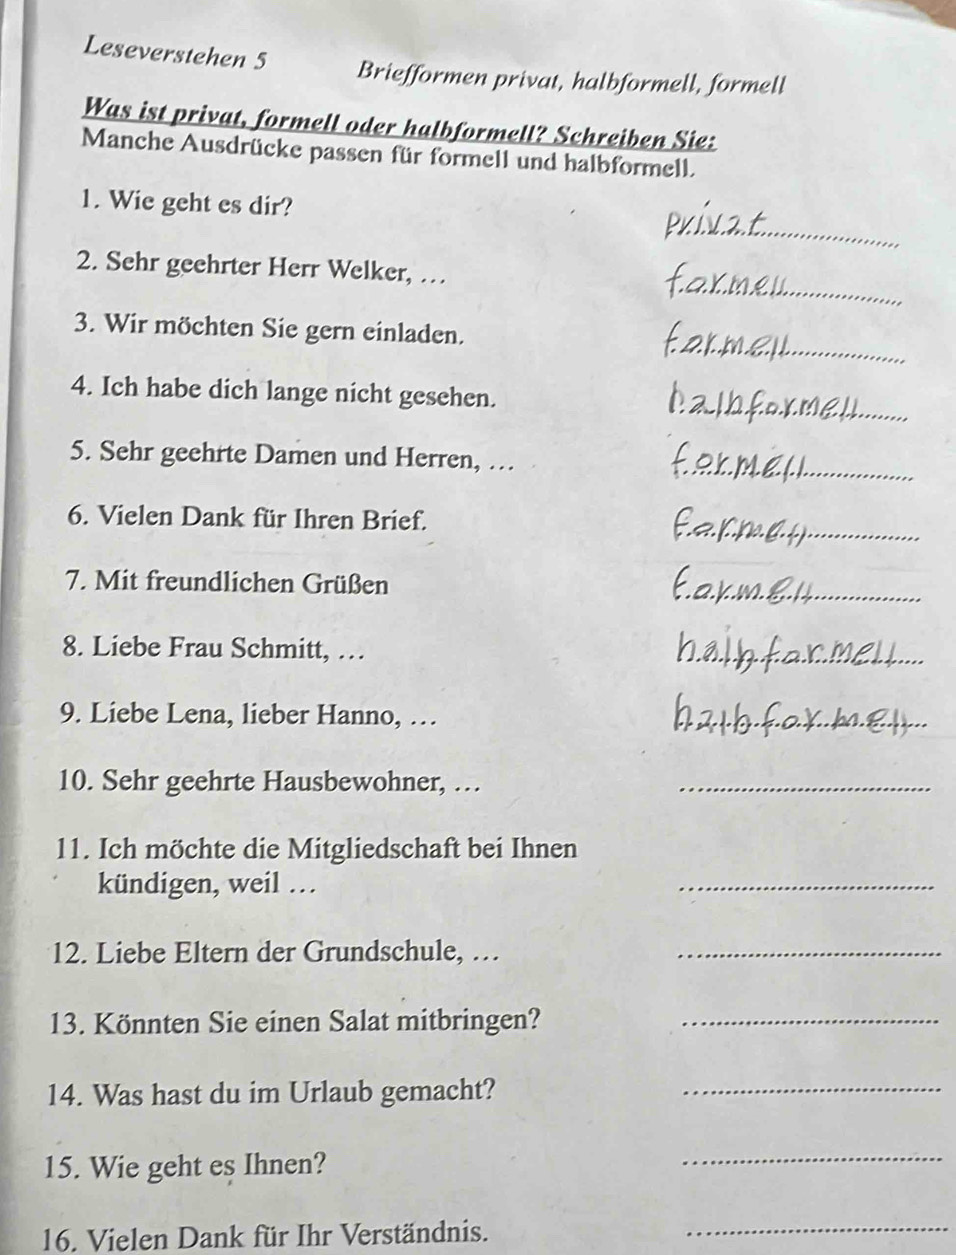 Leseverstehen 5
Briefformen privat, halbformell, formell
Was ist privat, formell oder halbformell? Schreiben Sie:
Manche Ausdrücke passen für formell und halbformell.
1. Wie geht es dir? privat
2. Sehr geehrter Herr Welker, … formell
3. Wir möchten Sie gern einladen. formell
4. Ich habe dich lange nicht gesehen. halbformell
5. Sehr geehrte Damen und Herren, … formell
6. Vielen Dank für Ihren Brief. formell
7. Mit freundlichen Grüßen formell
8. Liebe Frau Schmitt, … halbformell
9. Liebe Lena, lieber Hanno, … halbformell
10. Sehr geehrte Hausbewohner, …
11. Ich möchte die Mitgliedschaft bei Ihnen
kündigen, weil …
12. Liebe Eltern der Grundschule, …
13. Könnten Sie einen Salat mitbringen?
14. Was hast du im Urlaub gemacht?
15. Wie geht es Ihnen?
16. Vielen Dank für Ihr Verständnis.